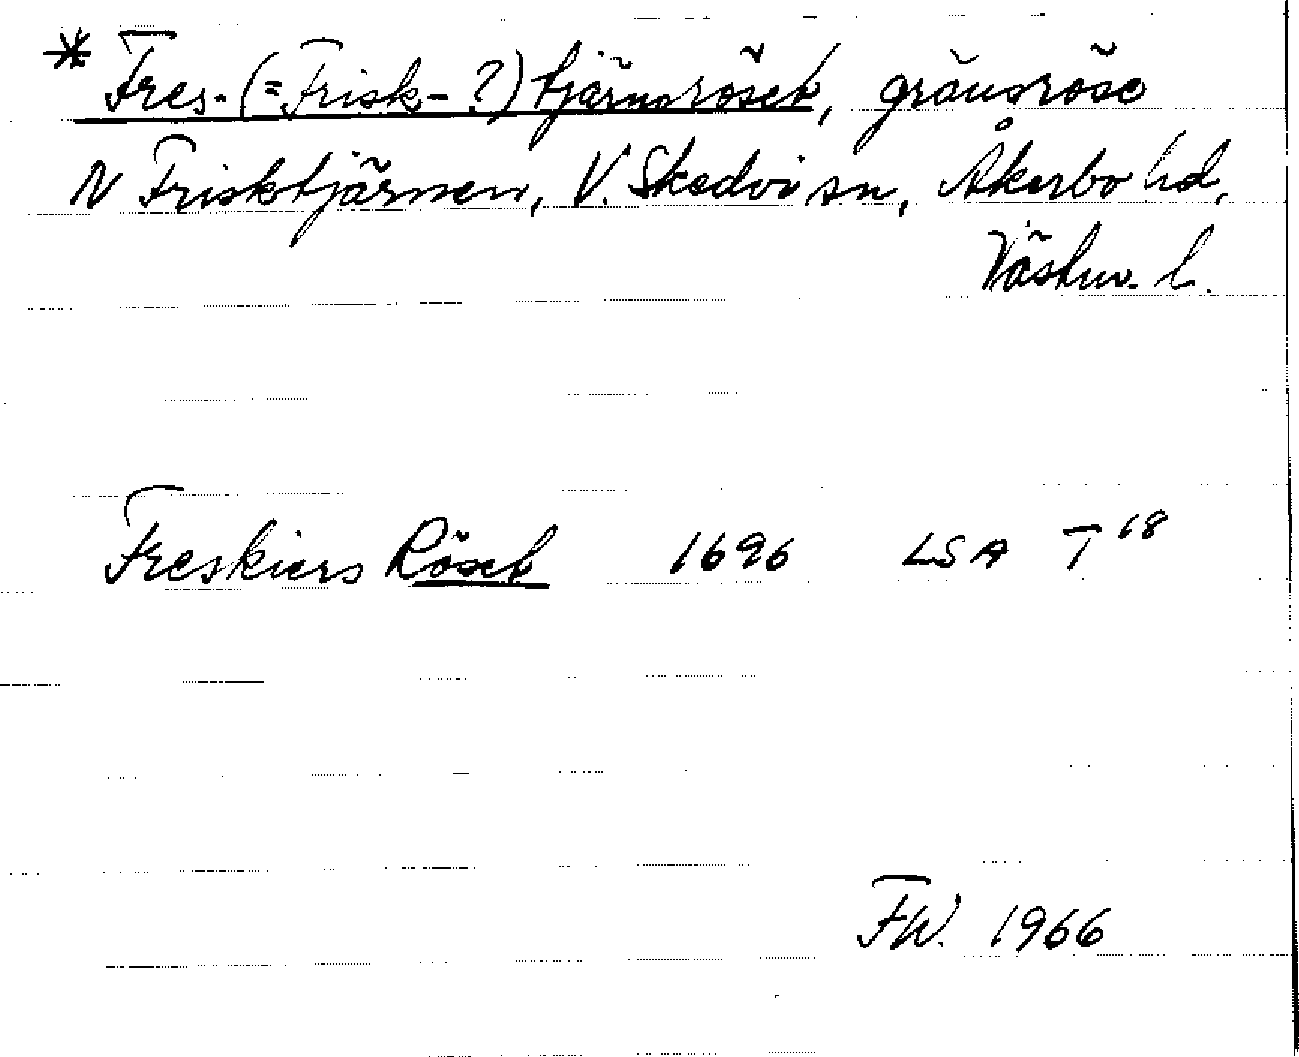 * Fres- (= Frisk- ?) tjärnsröset, gränsröse
N Frisktjärnen, V. Skedvi sn, Åkerbo hd,
Västm. l.
Freskiers Röset 1696 LSA T 18
FW. 1966